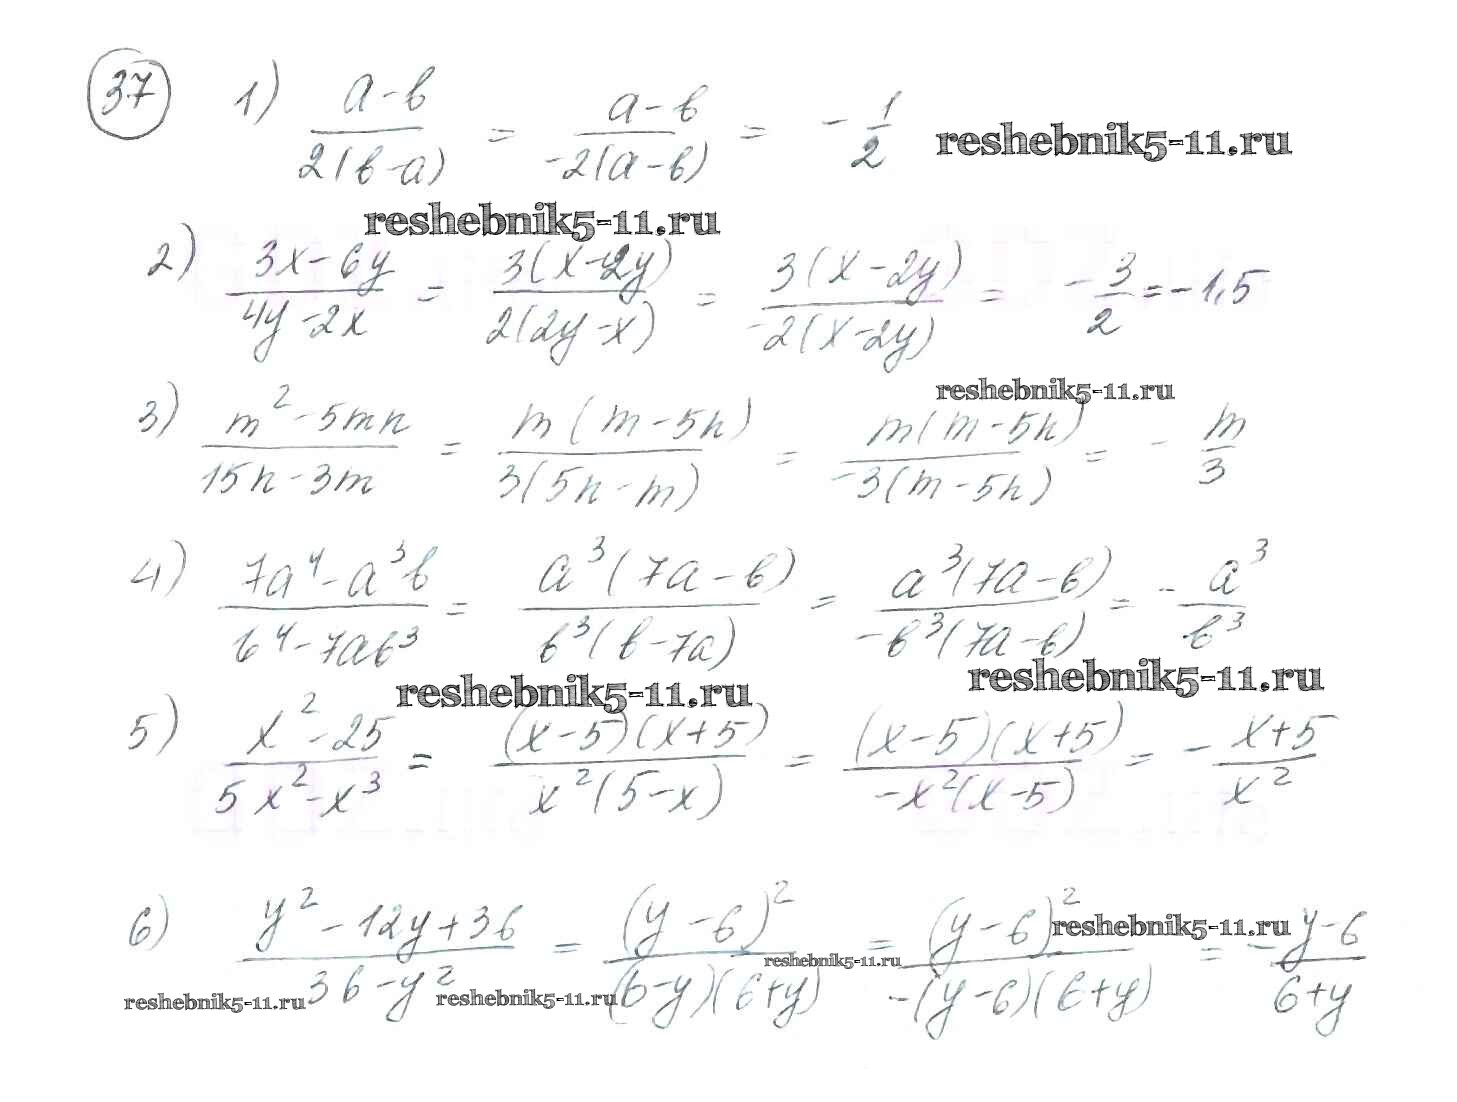 37 1) (a-b)/(2(b-a)) = (a-b)/(-2(a-b)) = -1/2 reshebnik5-11.ru
reshebnik5-11.ru
2) (3x-6y)/(4y-2x) = (3(x-2y))/(2(2y-x)) = (3(x-2y))/(-2(x-2y)) = -3/2 = -1,5
reshebnik5-11.ru
3) (m²-5mn)/(15n-3m) = (m(m-5n))/(3(5n-m)) = (m(m-5n))/(-3(m-5n)) = -m/3
4) (7a⁴-a³b)/(b⁴-7ab³) = (a³(7a-b))/(b³(b-7a)) = (a³(7a-b))/(-b³(7a-b)) = -a³/b³
reshebnik5-11.ru reshebnik5-11.ru
5) (x²-25)/(5x²-x³) = ((x-5)(x+5))/(x²(5-x)) = ((x-5)(x+5))/(-x²(x-5)) = -(x+5)/x²
6) (y²-12y+36)/(36-y²) = (y-6)²/((6-y)(6+y)) = (y-6)²/(-(y-6)(6+y)) = -(y-6)/(6+y)
reshebnik5-11.ru
reshebnik5-11.ru
reshebnik5-11.ru reshebnik5-11.ru